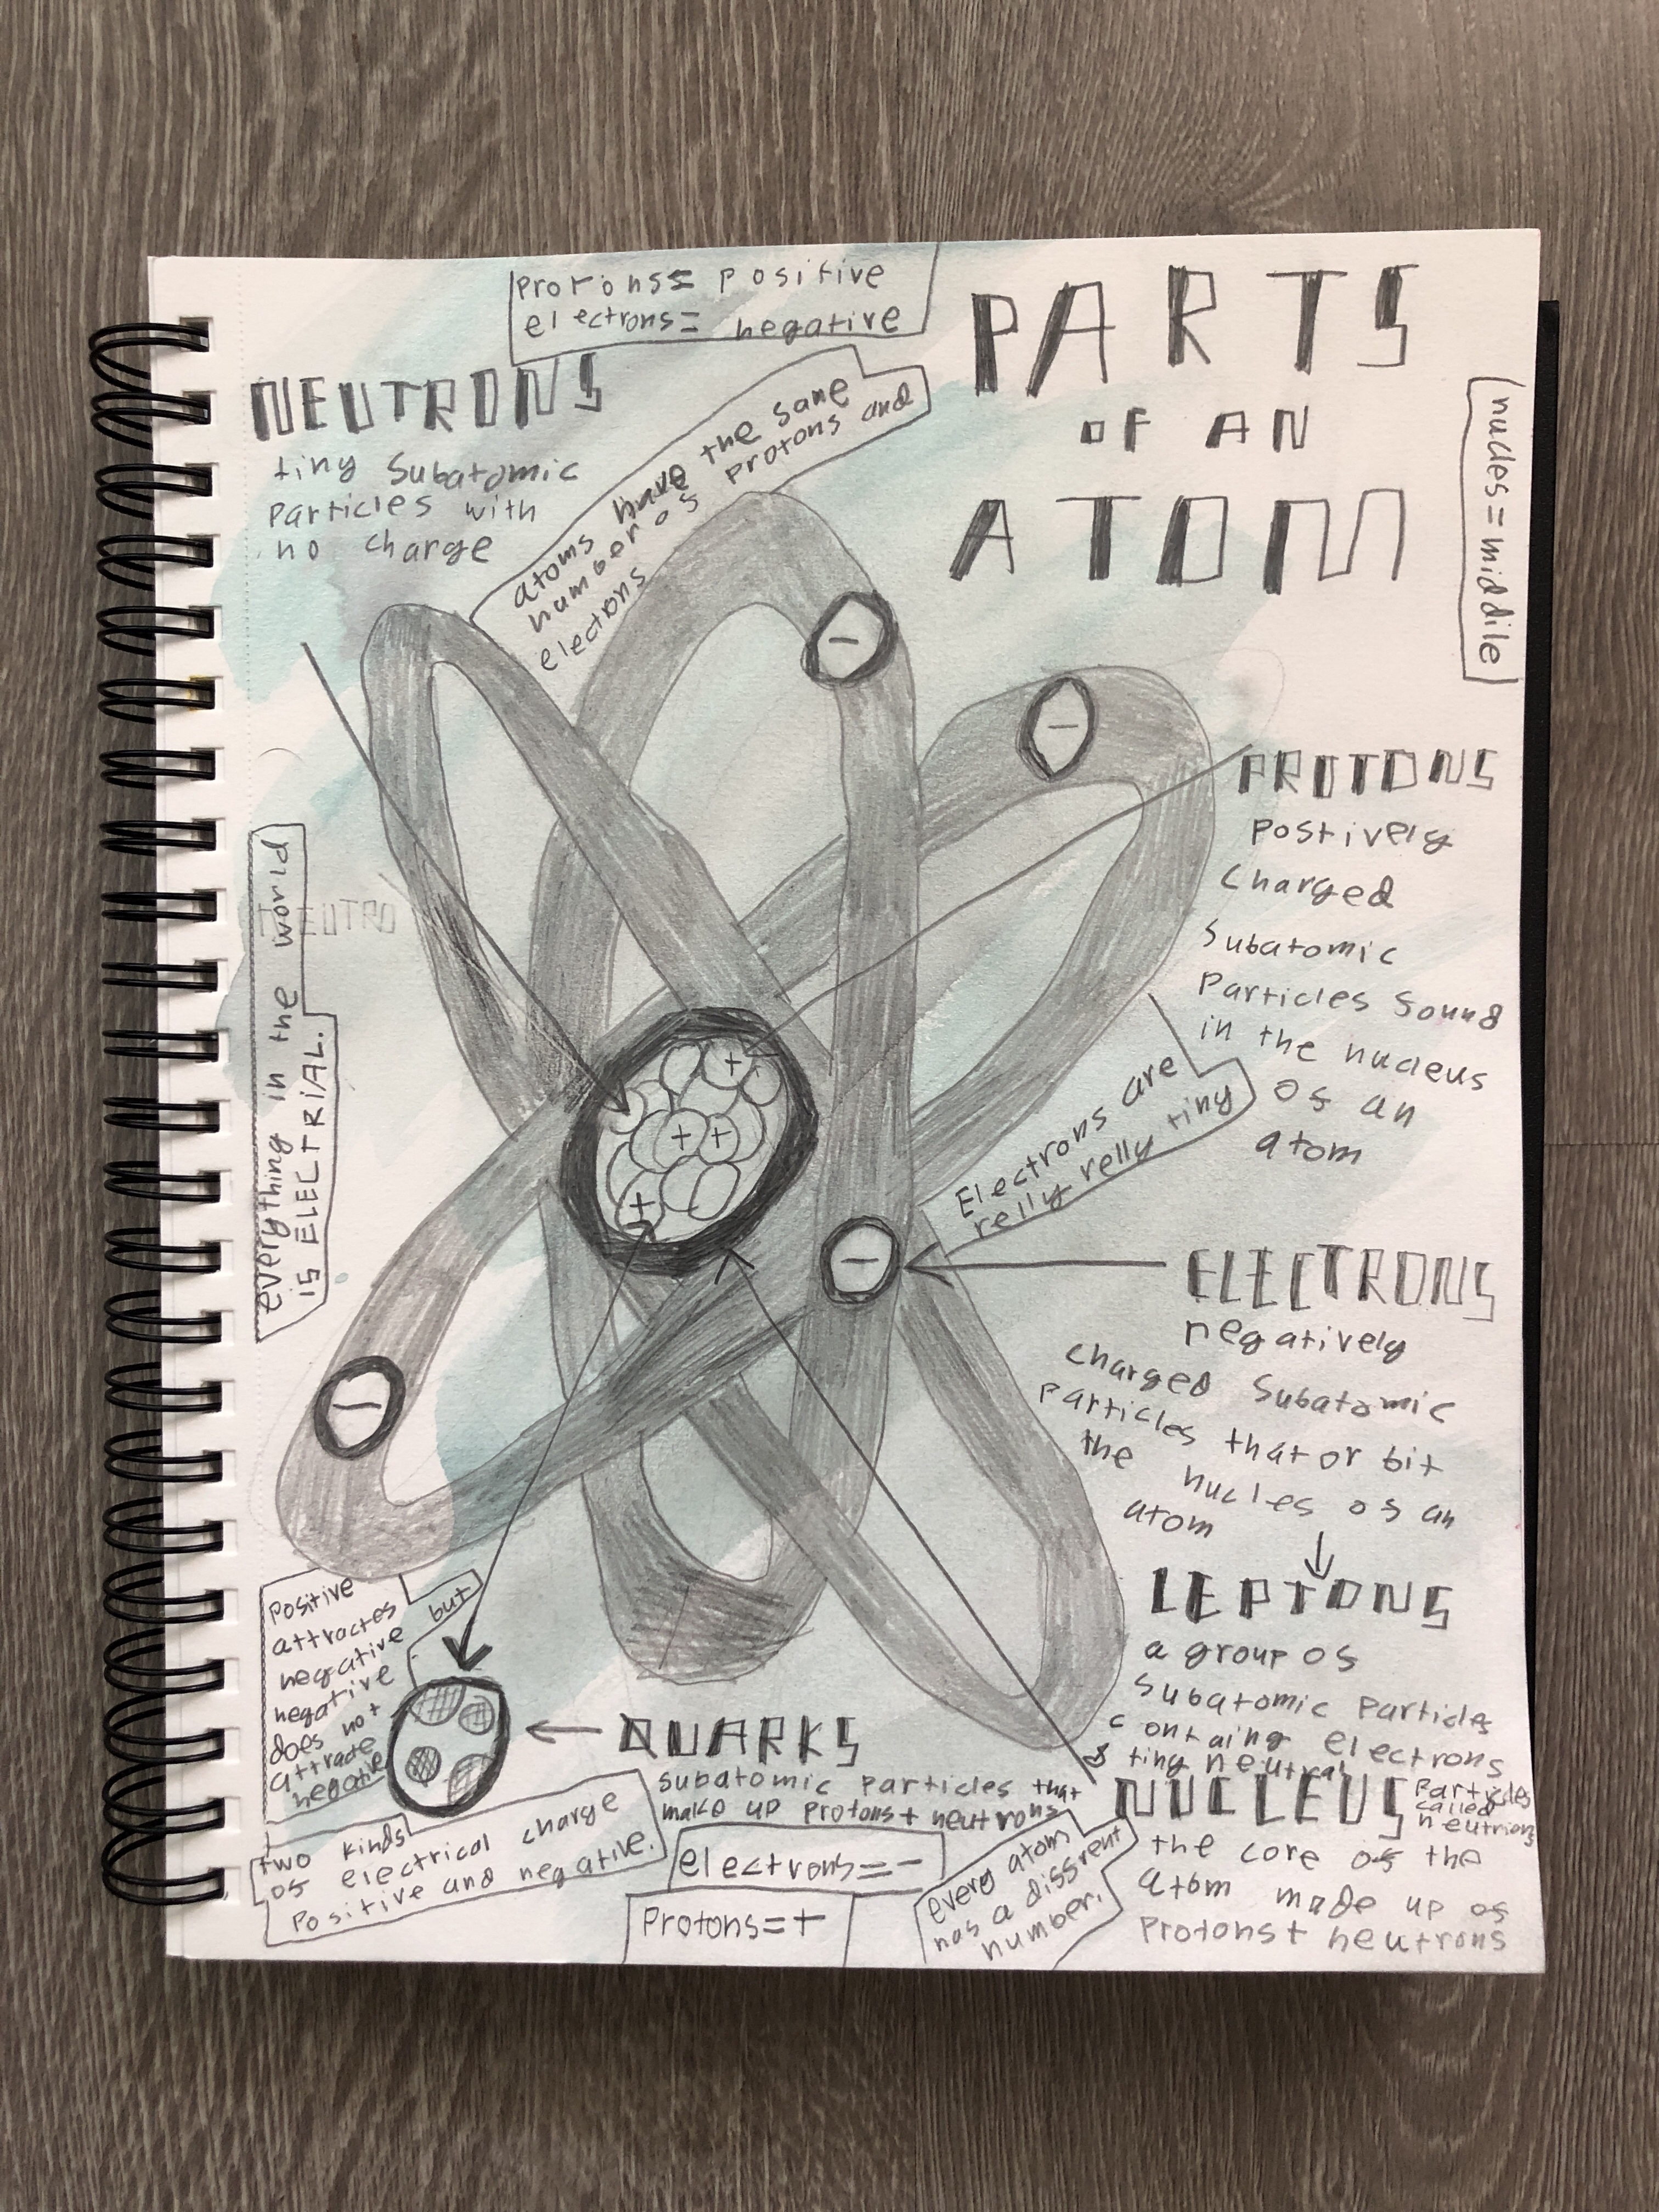 Protons= positive
electrons= negative
PARTS
OF AN
ATOM
nucles=middile
NEUTRONS
tiny Subatomic
Particles with
no charge
atoms have the same
number os protons and
electrons
PROTONS
Postively
Charged
Subatomic
Particles sound
in the nucleus
os an
atom
NEUTRO
everything in the world
is ELECTRIAL.
Electrons are
relly relly tiny
ELECTRONS
negatively
Charged Subatomic
Particles that or bit
the nucles os an
atom
LEPTONS
a group os
Subatomic Particles
containg electrons
& tiny neutral
Particles
called
neutrions
Positive
attractes
negative
but
negative
does not
attracte
negative
QUARKS
subatomic particles that
make up protons + neutrons
two kinds
os electrical charge
Positive and negative.
electrons=-
Protons=+
every atom
has a dissrent
number.
NUCLEUS
the core os the
atom made up os
Protons + neutrons
-
-
-
-
+
+ +
+